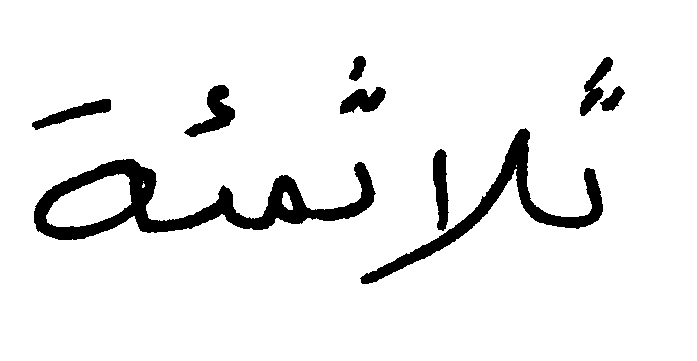 ثلاثمئة